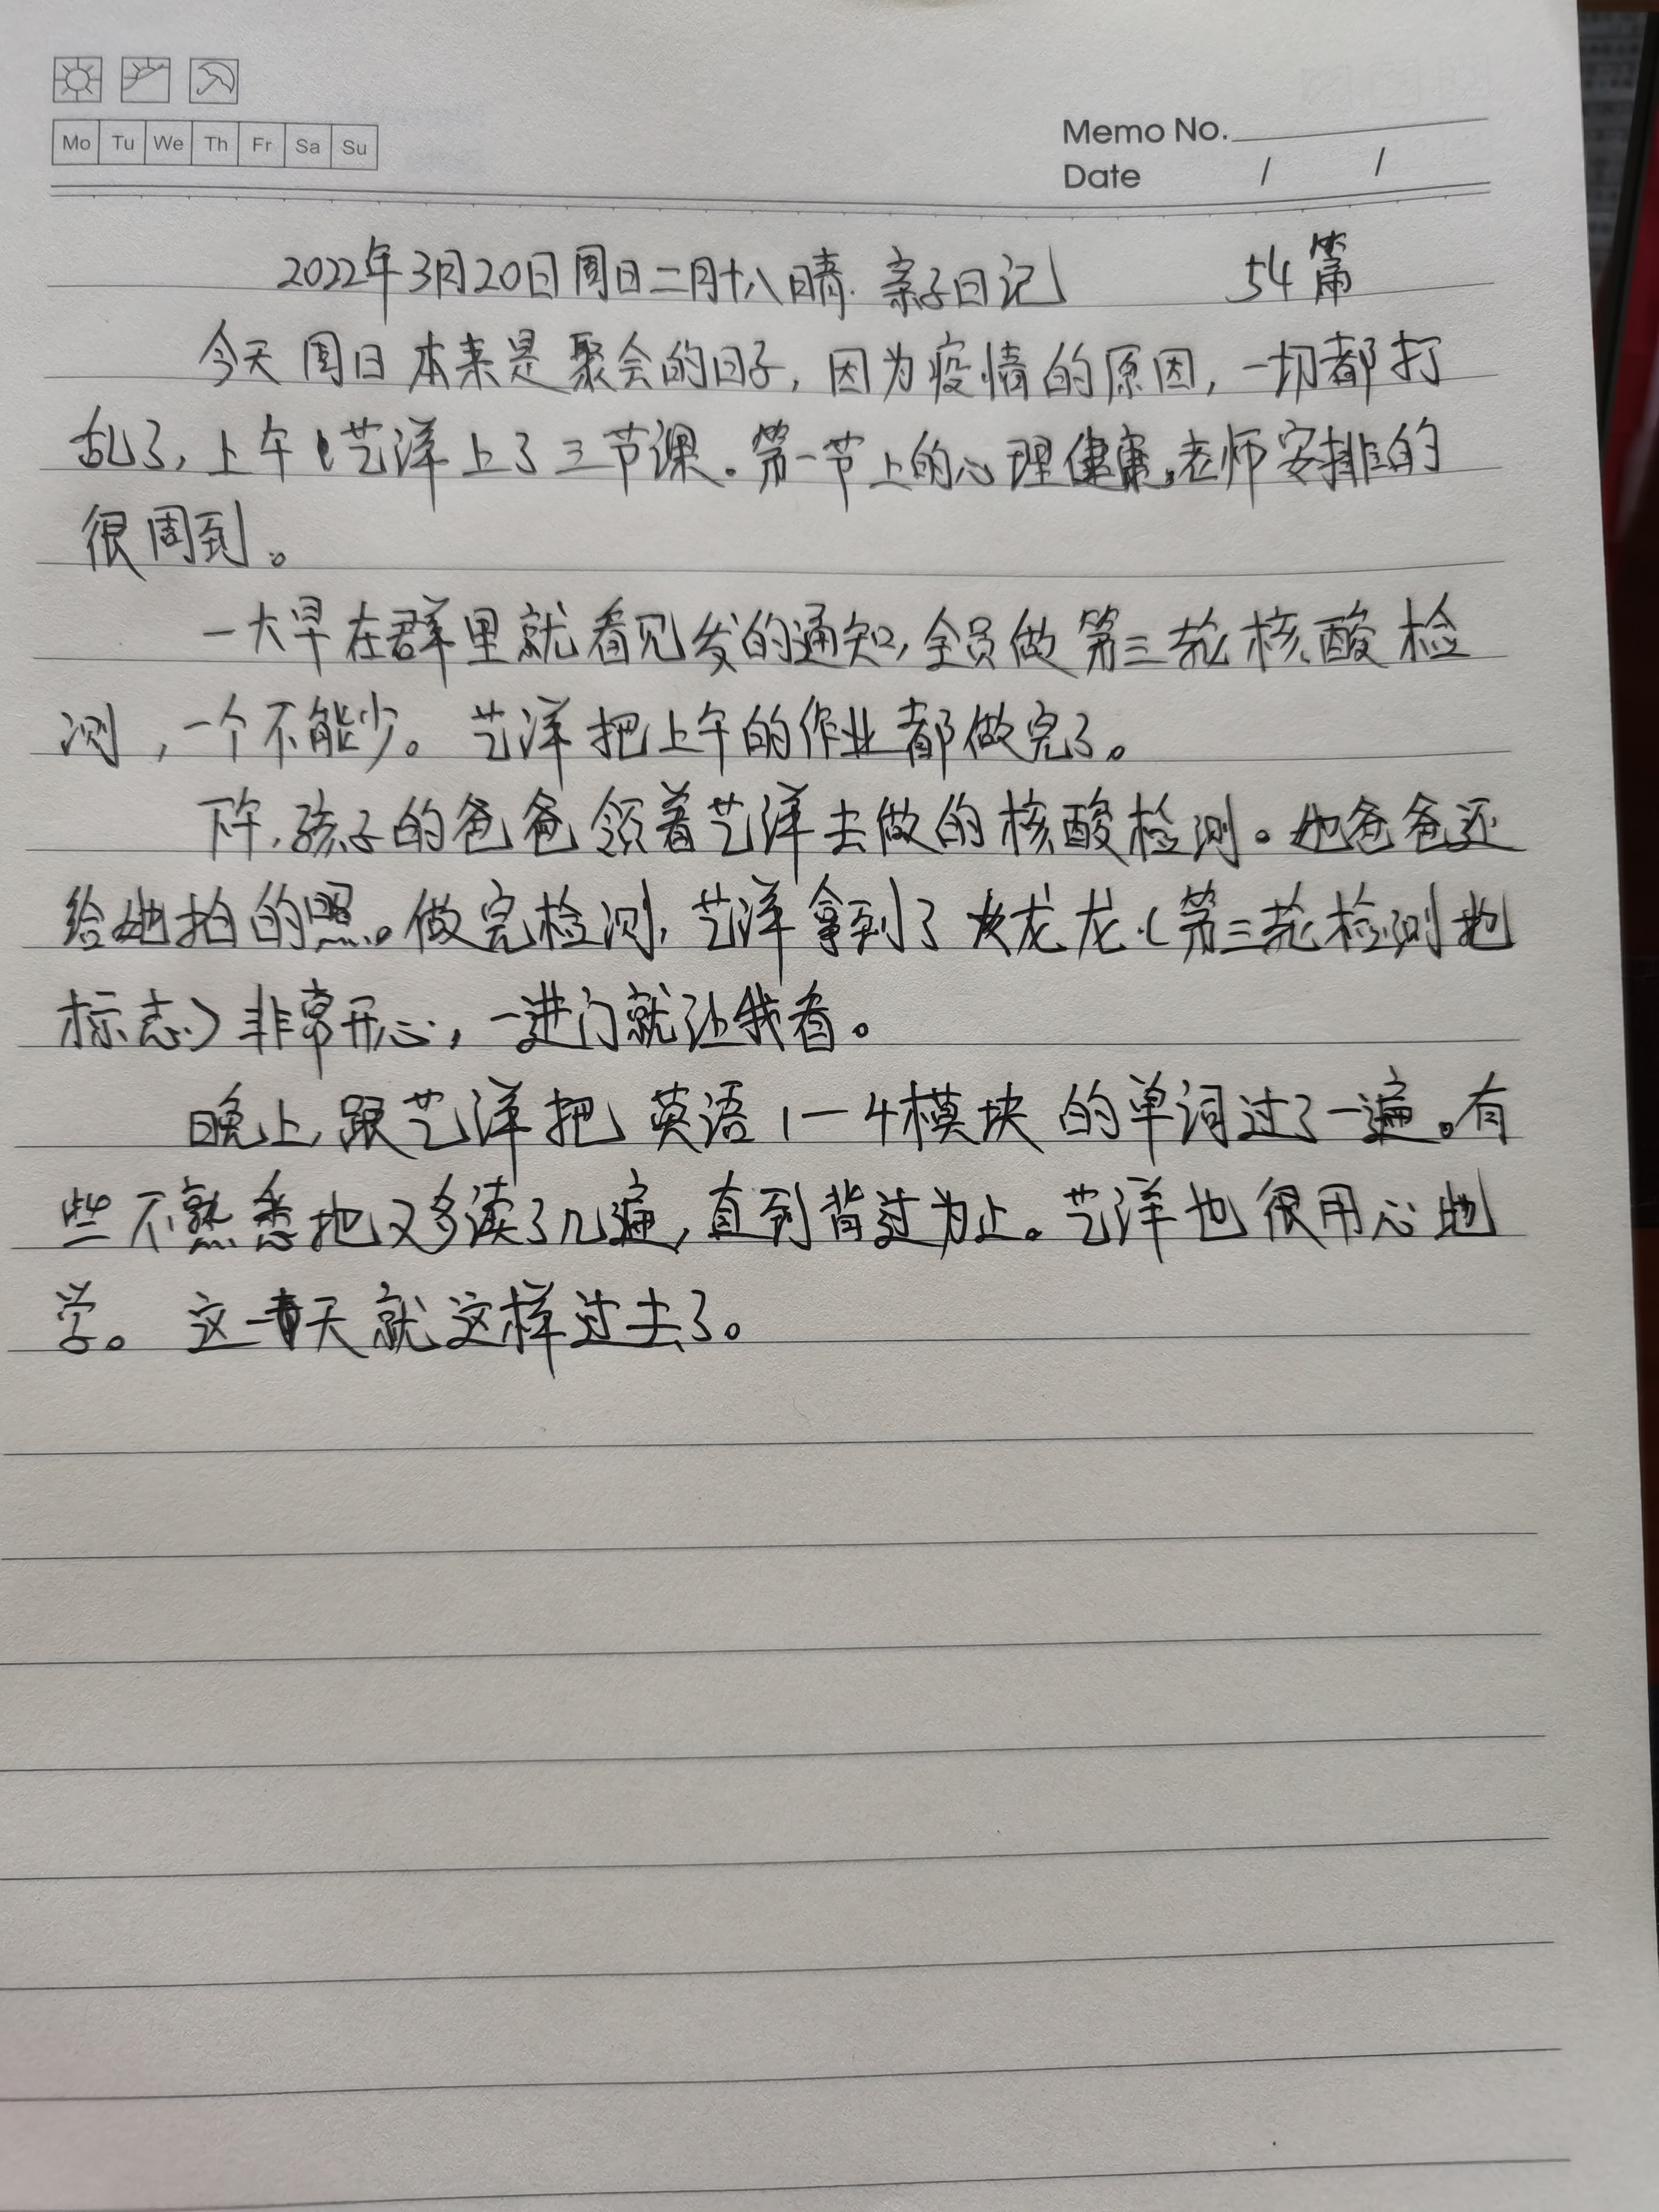 Mo Tu We Th Fr Sa Su
Memo No.
Date / /
2022年3月20日周日二月十八晴. 亲子日记 54篇
今天周日本来是聚会的日子,因为疫情的原因,一切都打
乱了,上午艺洋上了三节课。第一节上的心理健康,老师安排的
很周到。
一大早在群里就看见发的通知,全员做第三轮核酸检
测,一个不能少。艺洋把上午的作业都做完了。
下午,孩子的爸爸领着艺洋去做的核酸检测。她爸爸还
给她拍的照。做完检测,艺洋拿到了龙龙.(第三轮检测地
标志)非常开心,一进门就让我看。
晚上,跟艺洋把英语1—4模块的单词过了一遍。有
些不熟悉地又多读了几遍,直到背过为止。艺洋也很用心地
学。这一天就这样过去了。